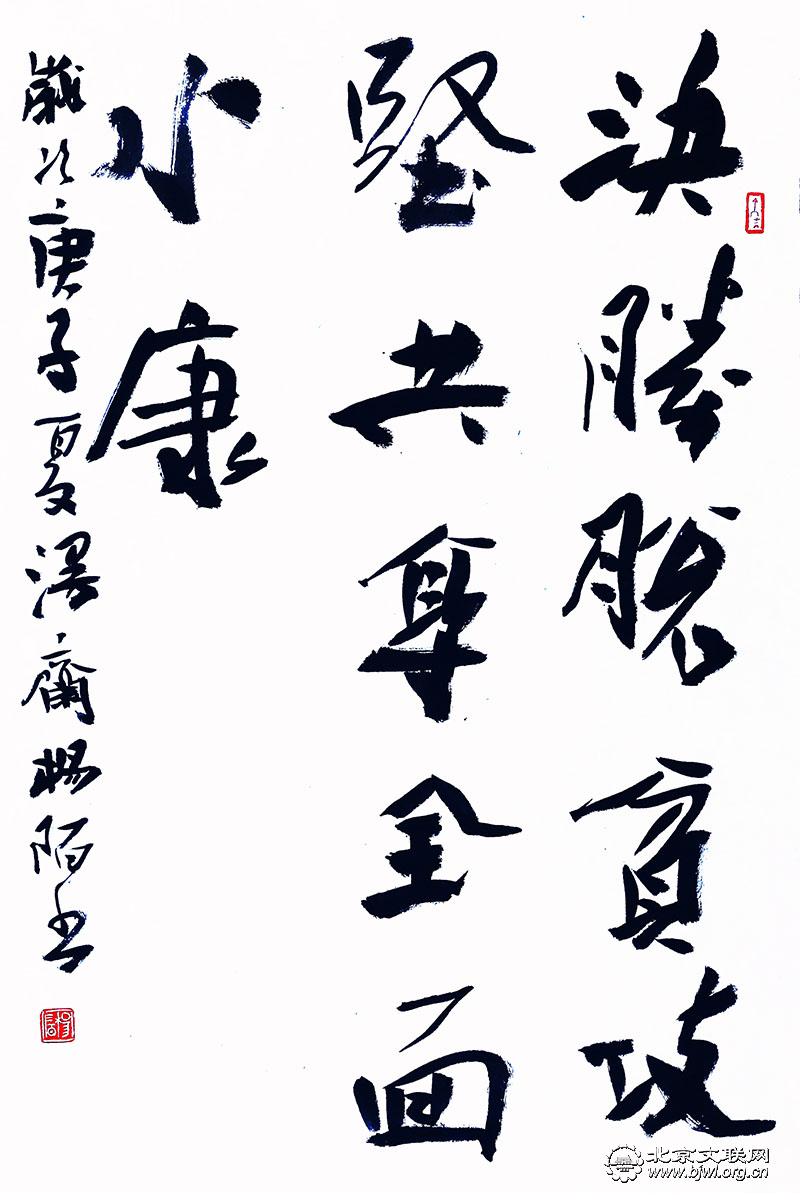 決勝脫貧攻
堅共享全面
小康
歲次庚子夏漫齋楊陌书
北京文联网
www.bjwl.org.cn